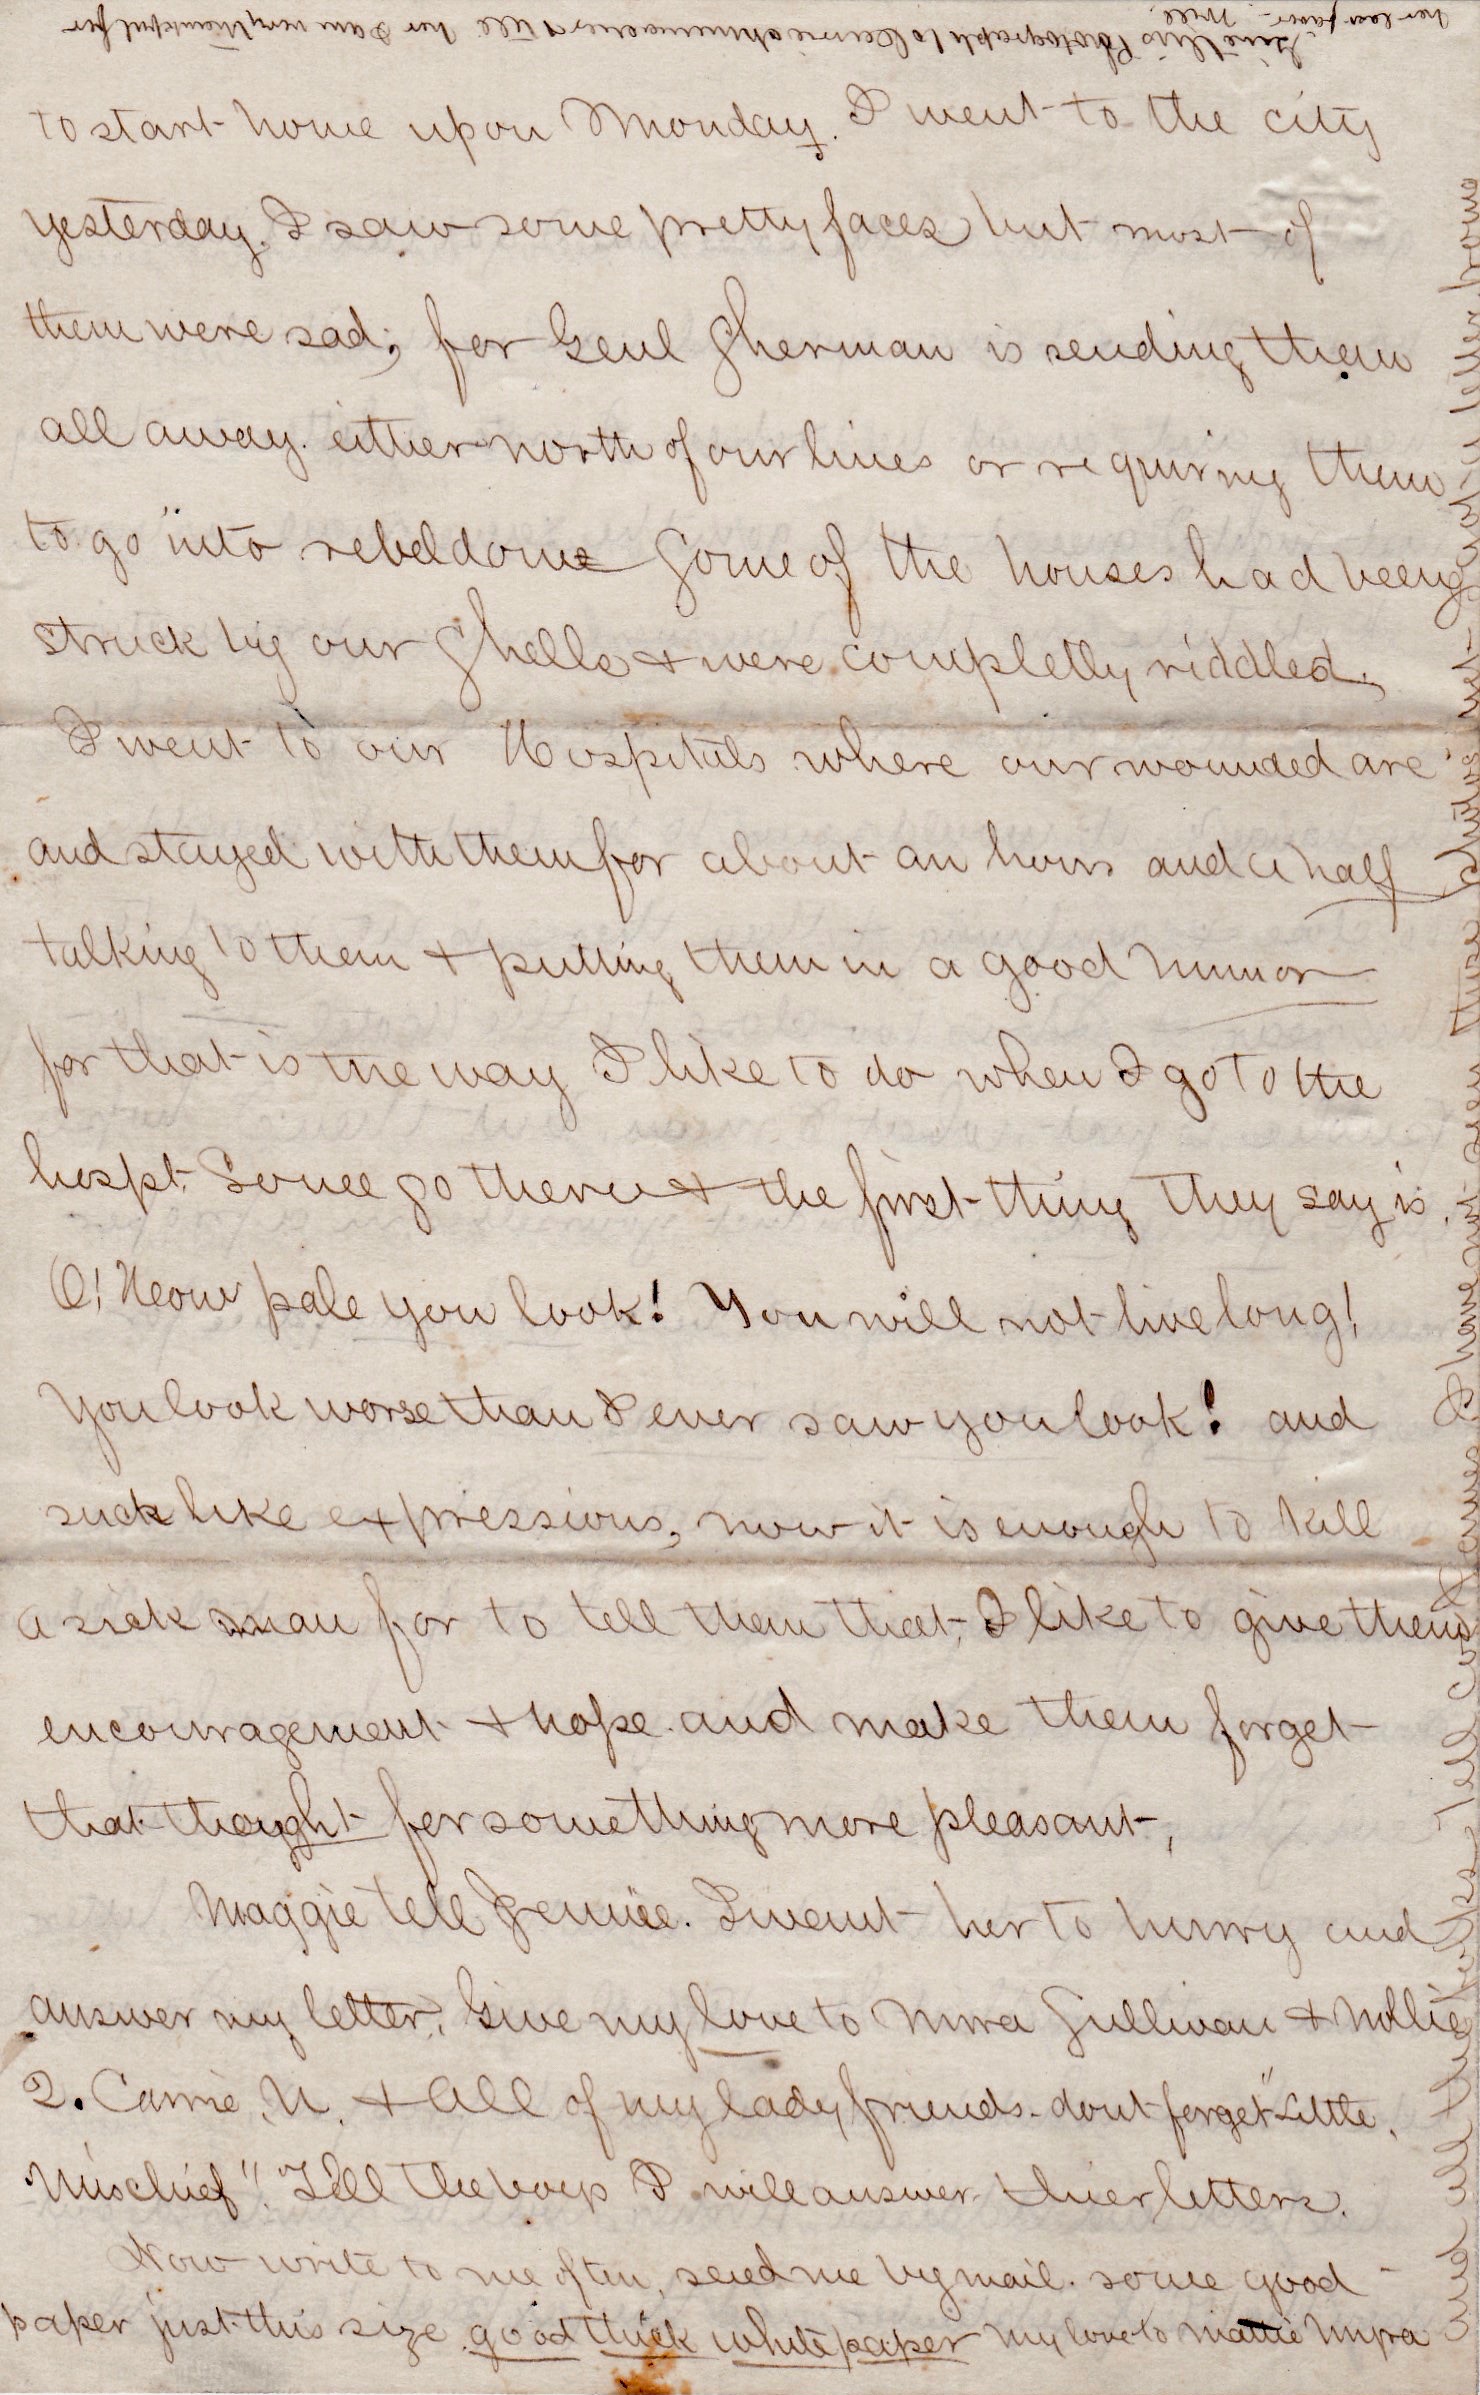 to start home upon Monday. I went to the city
yesterday, I saw some pretty faces but most of
them were sad; for Genl Sherman is sending them
all away. either north of our lines or requiring them
to go "into rebeldome Some of the houses had being
struck by our Shells & were completly riddled,
I went to our Hospitals where our wounded are
and stayed with them for about an hour and a half
talking to them & putting them in a good humor
for that is the way I like to do when I go to the
hospt. Some go there & the first thing they say is
O! Heow pale you look! You will not live long!
You look worse than I ever saw you look! and
such like expressions, now it is enough to kill
a sick man for to tell them that, I like to give them
encouragement & hope. and make them forget
that thought for something more pleasant,
Maggie tell Jennie. I want her to hurry and
answer my letter, Give my love to Mira Sullivan & Mollie
Q. Carrie, N. & All of my lady friends. dont forget "Little
Mischief". Tell the boys I will answer thier letters.
Now write to me often, send me by mail. some good
paper just this size good thick white paper my love to Mattie Myra
and all the folks, Tell Cos James I have not seen those Shirts yet. got a letter from
Give this Photograph to Carrie and tell her I am very thankful for
her last favor. Will